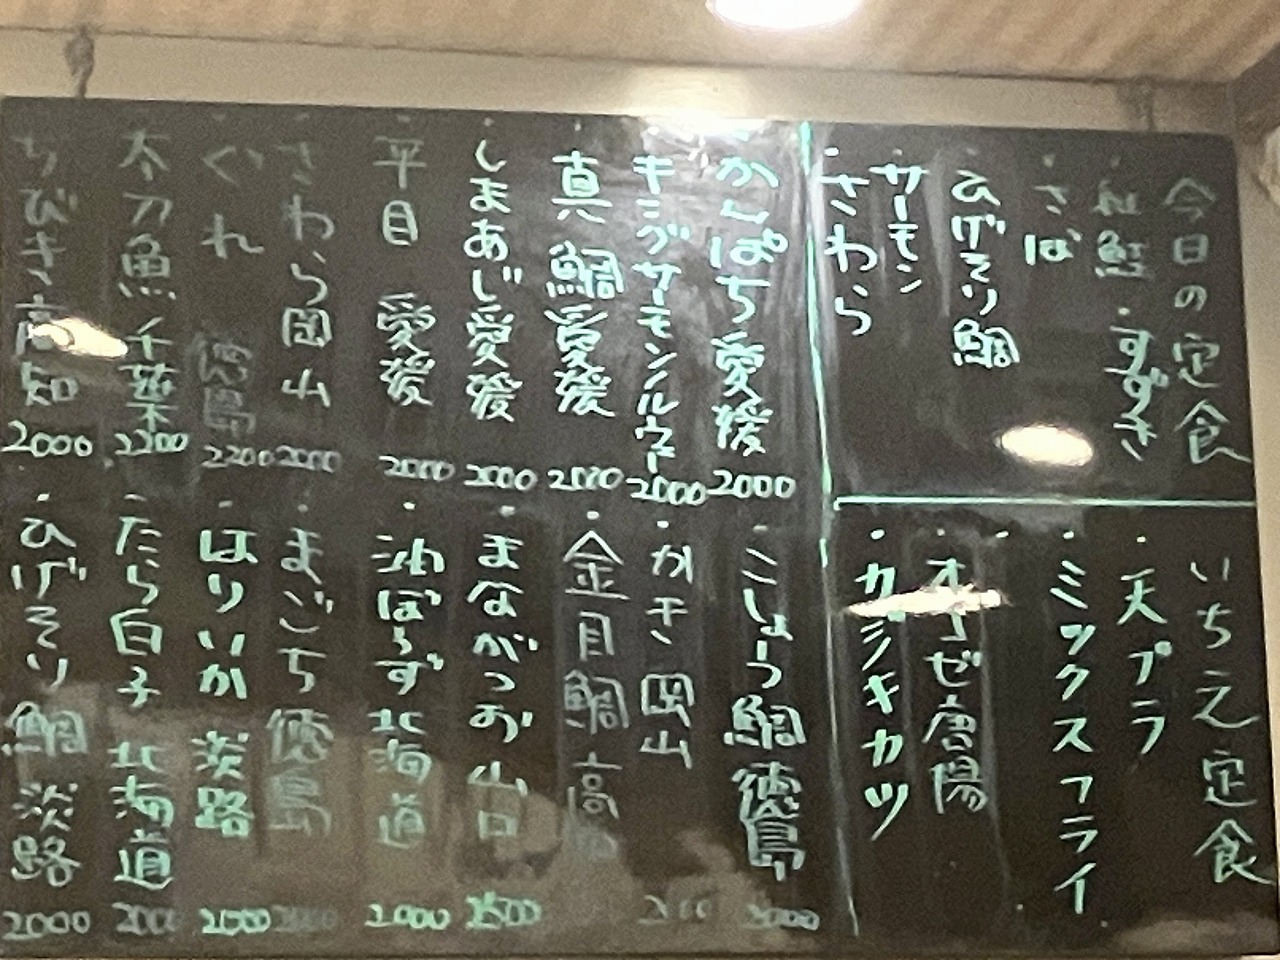 今日の定食
紅鮭
・すずき
・さば
・ひげそり鯛
・サーモン
・さわら
いちえ定食
・天プラ
・ミックスフライ
・オコゼ唐陽
・カジキカツ
かんぱち 愛媛 2000
キングサーモン ノルウェー 2000
真鯛 愛媛 2000
しまあじ 愛媛 2000
平目 愛媛 2000
さわら 岡山 2000
ぐれ 徳島 2200
太刀魚 千葉 2200
ちびき 高知 2000
・こしょう鯛 徳島 2000
・かき 岡山
・金目鯛
・まながつお 山口 2500
・油ぼうず 北海道 2000
・まごち 徳島
・はりいか 淡路 2000
・たら白子 北海道
・ひげそり鯛 淡路 2000